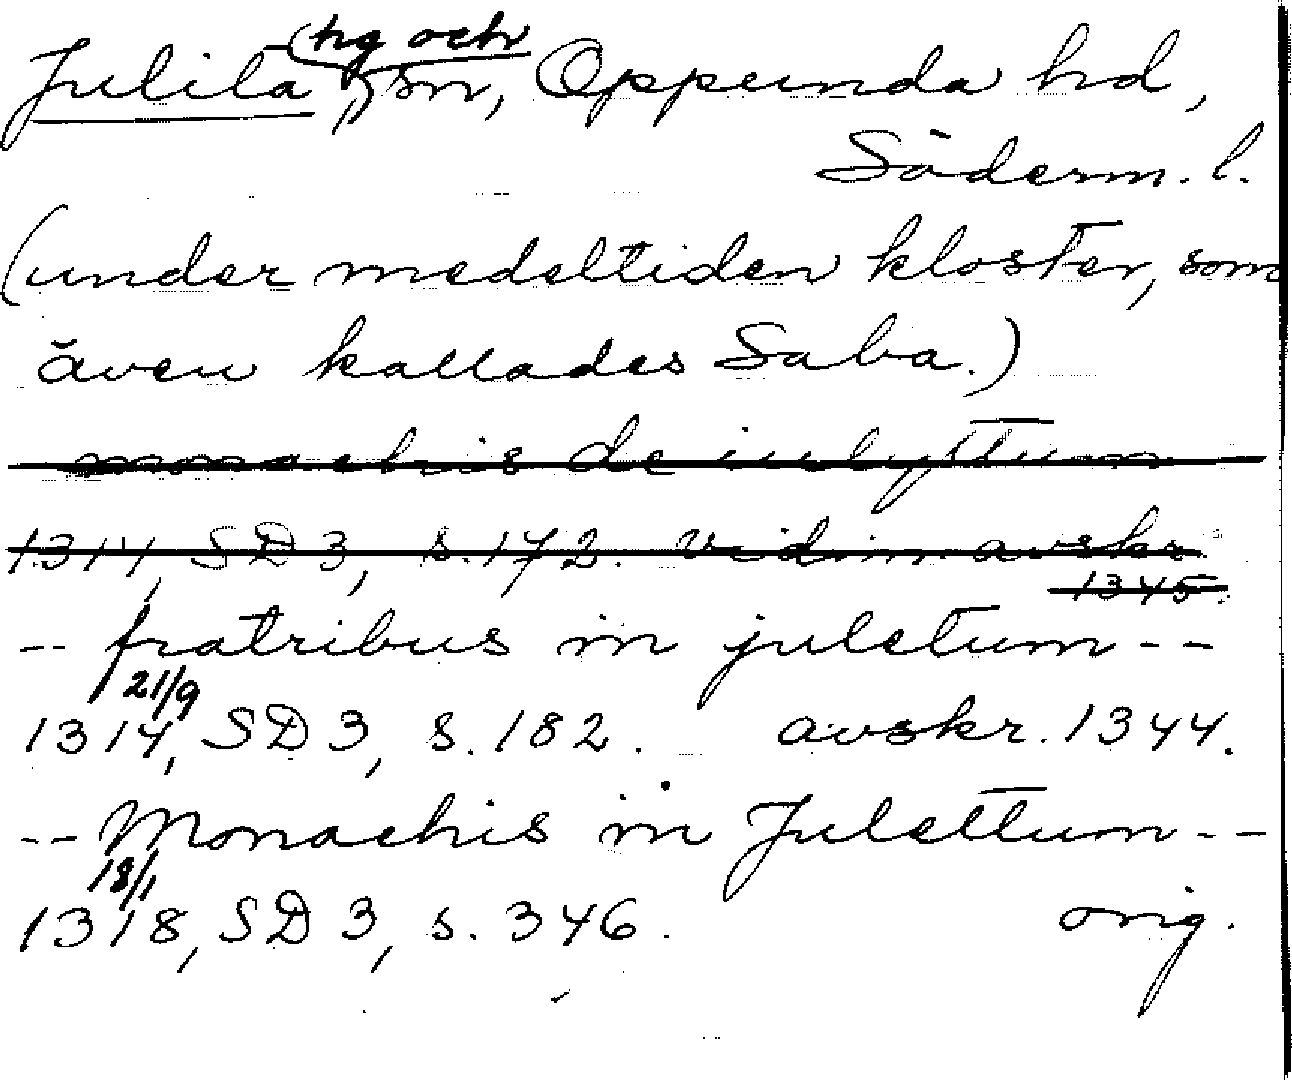 Julita (hg och) sn, Oppunda hd,
Söderm. l.
(under medeltiden kloster, som
även kallades Saba.)
monachis de iulyttum
1314, SD 3, s. 172. vidim avskr
1345.
-- fratribus in juletum --
21/9
1314, SD 3, s. 182. avskr. 1344.
-- Monachis in Julettum --
18/1
1318, SD 3, s. 346. orig.